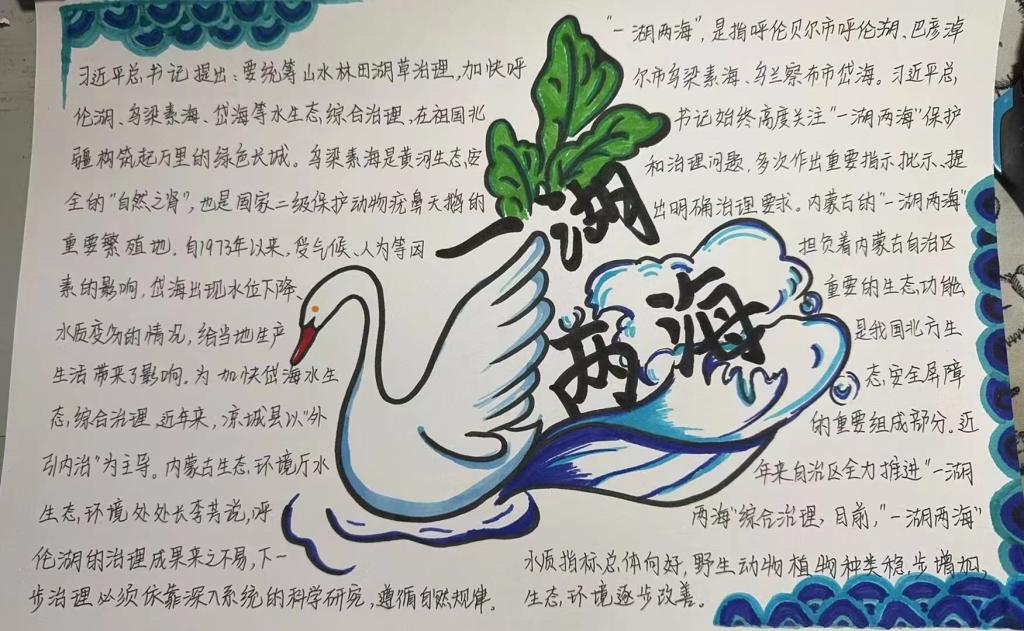 习近平总书记提出：要统筹山水林田湖草治理，加快呼
伦湖、乌梁素海、岱海等水生态综合治理，在祖国北
疆构筑起万里的绿色长城。乌梁素海是黄河生态安
全的“自然之肾”，也是国家二级保护动物疣鼻天鹅的
重要繁殖地。自1973年以来，受气候、人为等因
素的影响，岱海出现水位下降、
水质变多的情况，给当地生产
生活带来了影响。为加快岱海水生
态综合治理，近年来，凉城县以“外
引内治”为主导。内蒙古生态环境厅水
生态环境处处长李芳说，呼
伦湖的治理成果来之不易，下一
步治理必须依靠深入系统的科学研究，遵循自然规律。
一湖
两海
“一湖两海”，是指呼伦贝尔市呼伦湖、巴彦淖
尔市乌梁素海、乌兰察布市岱海。习近平总
书记始终高度关注“一湖两海”保护
和治理问题，多次作出重要指示批示、提
出明确治理要求。内蒙古的“一湖两海”
担负着内蒙古自治区
重要的生态功能，
是我国北方生
态安全屏障
的重要组成部分。近
年来自治区全力推进“一湖
两海”综合治理，目前，“一湖两海”
水质指标总体向好，野生动物植物种类稳步增加，
生态环境逐步改善。